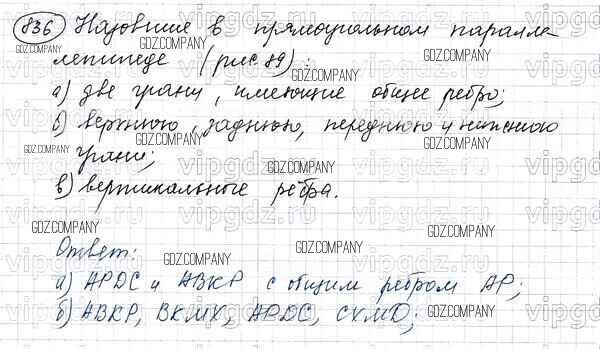 836 Назовите в прямоугольном паралле
лепипеде (рис. 89):
а) две грани, имеющие общее ребро;
б) верхнюю, заднюю, переднюю и нижнюю
грани;
в) вертикальные рёбра.
Ответ:
а) APDC и ABKP с общим ребром AP;
б) ABKP, BKMX, APDC, CXMD;
GDZ.COMPANY
vipgdz.ru